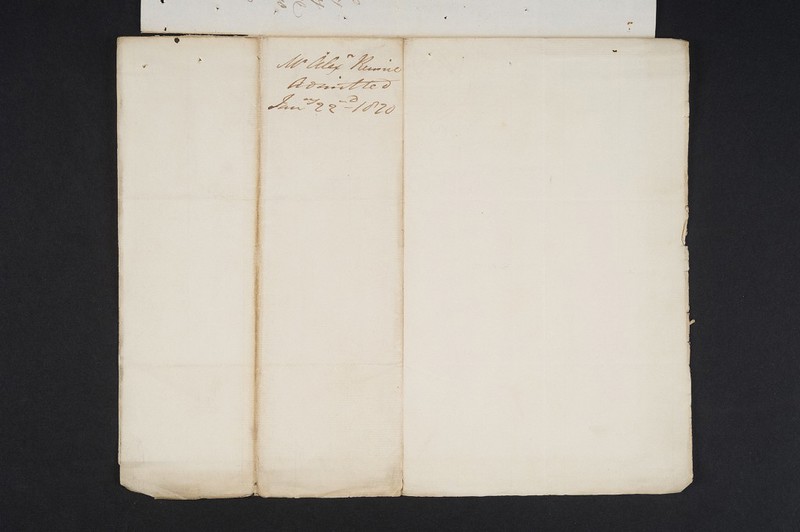 Mr Alexr Rennie
Admitted
Jany 22d 1820